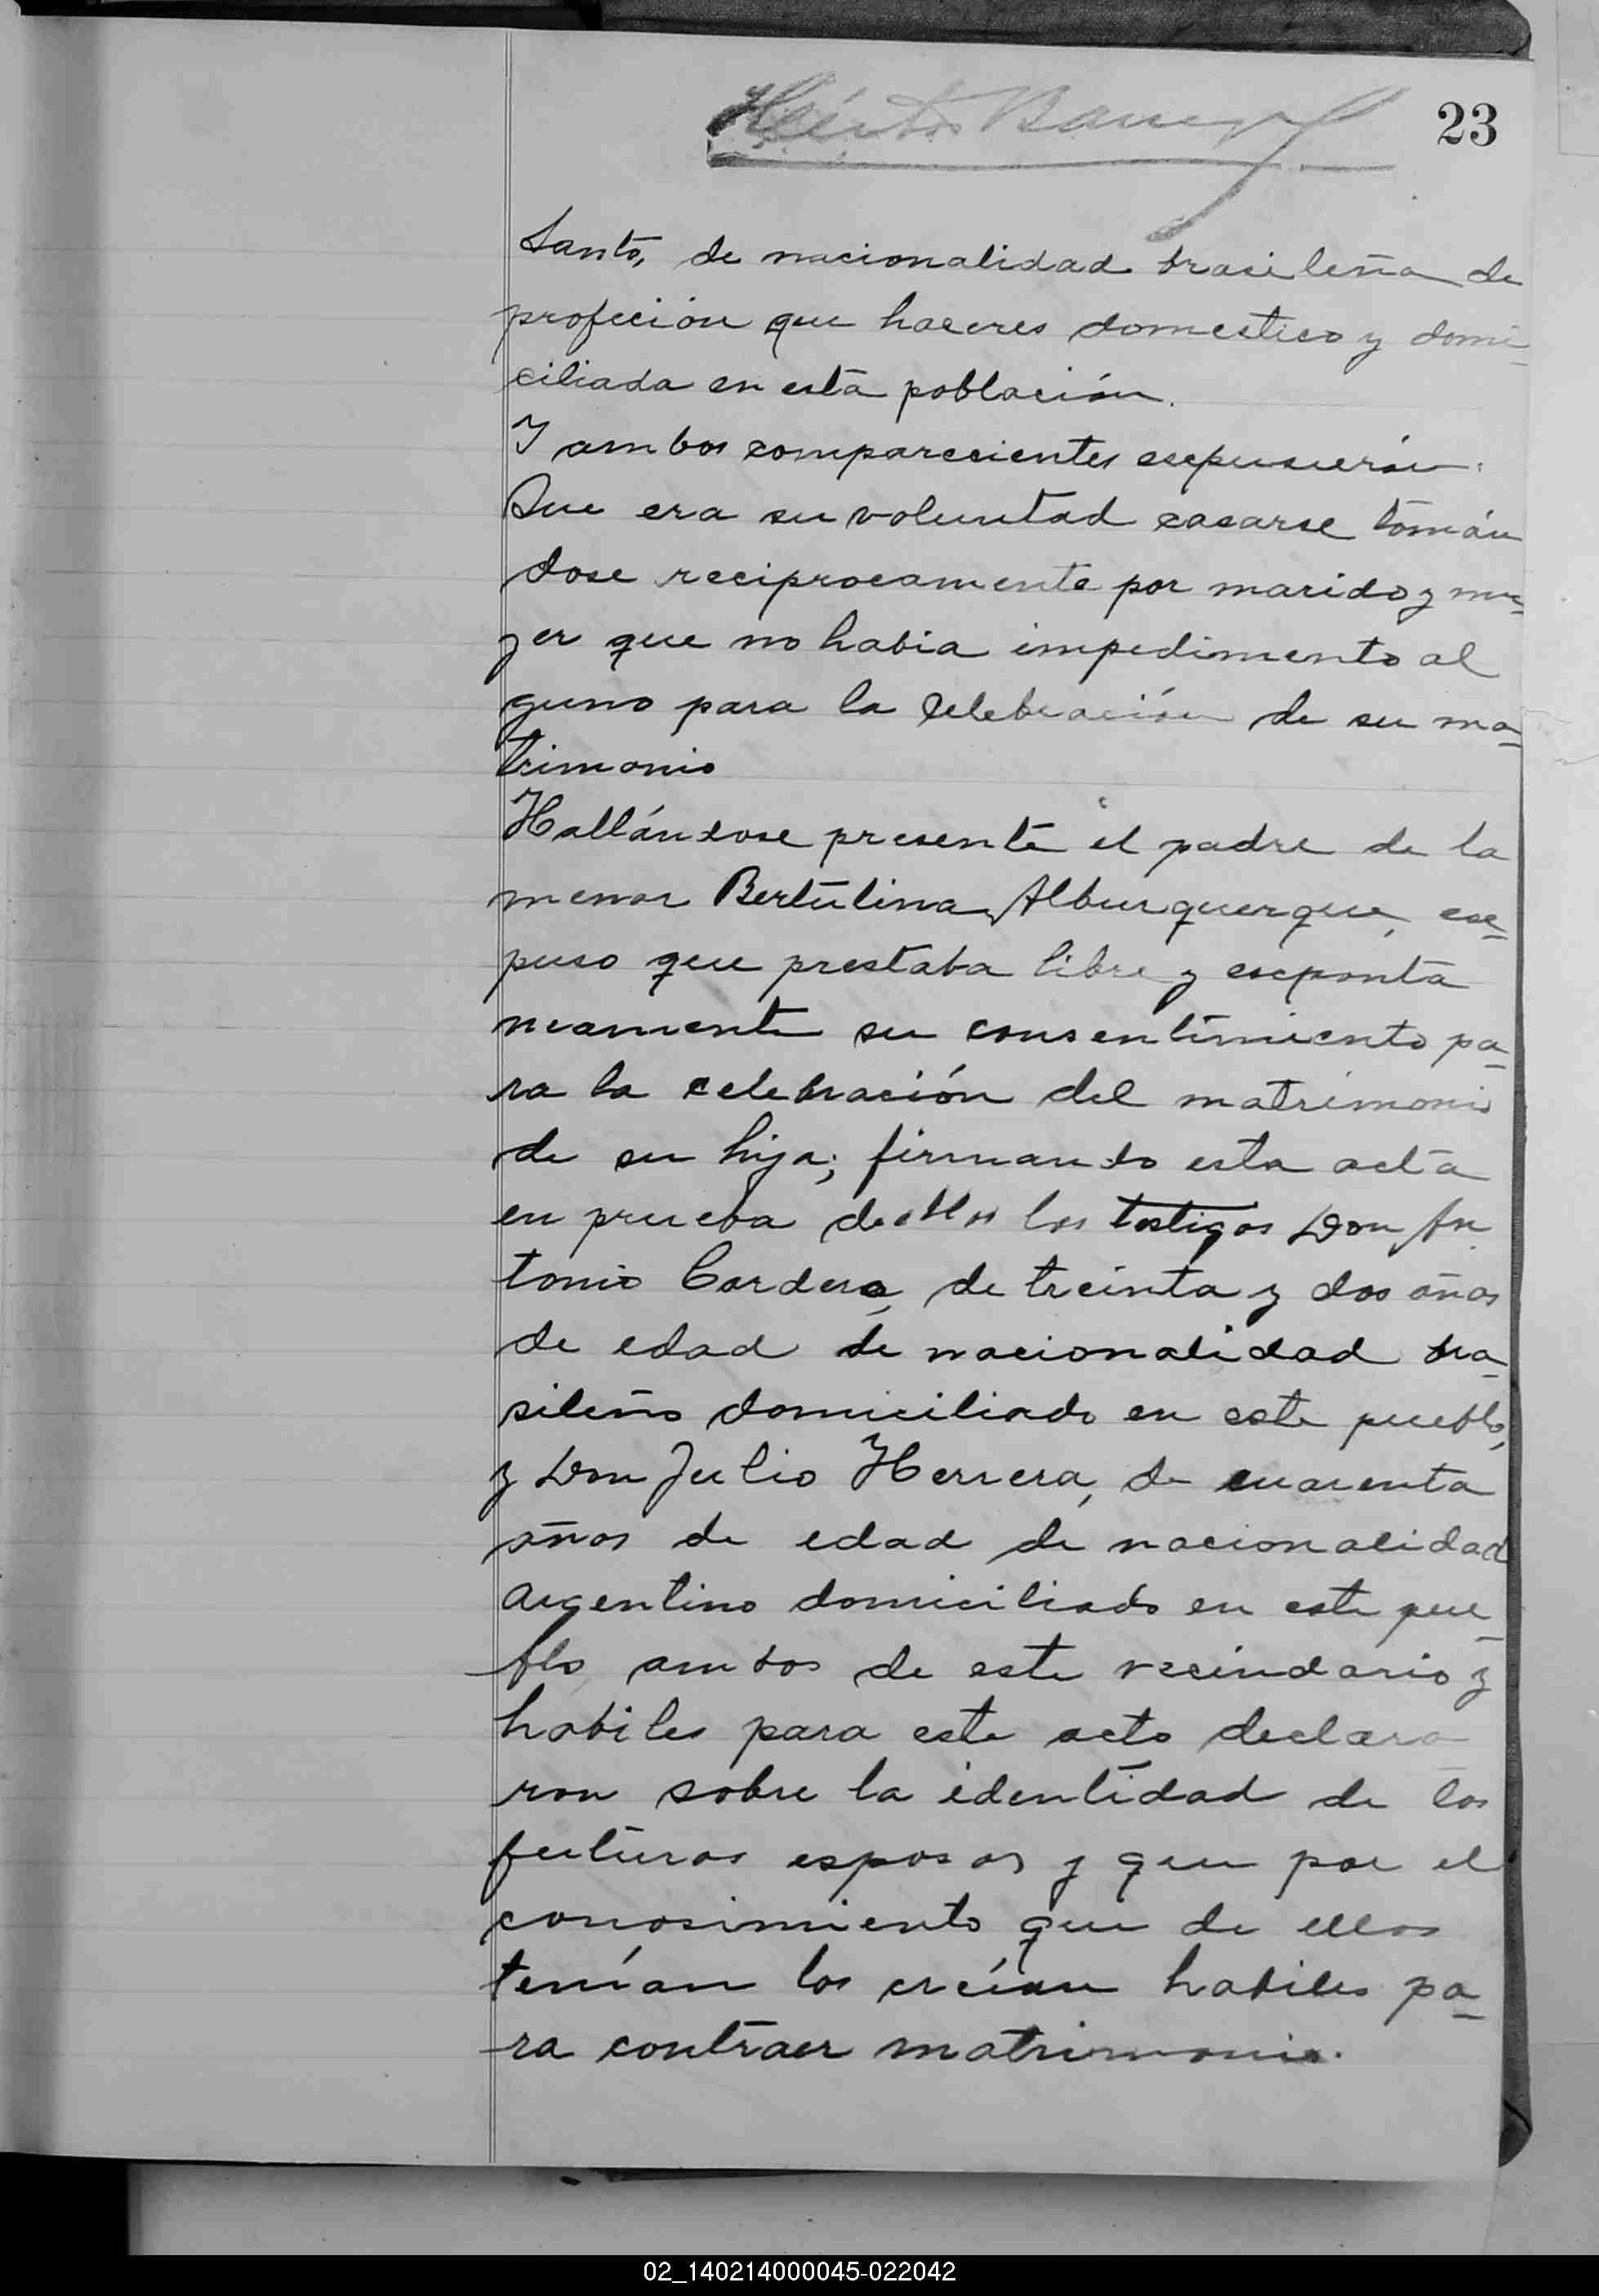 23
Santo, de nacionalidad brasileña de
profeción que haceres domestico y domi-
ciliada en esta población.
Y ambos comparecientes expusierón:
Que era su voluntad casarse tomán
dose reciprocamente por marido y mu-
jer que no habia impedimento al
guno para la celebración de su ma-
trimonio
Hallándose presente el padre de la
menor Bertulina Alburquerque, ex-
puso que prestaba libre y exponta
neamente su consentimiento pa-
ra la celebración del matrimonio
de su hija; firmando esta acta
en prueba de ello los testigos Don An
tonio Cordero, de treinta y dos años
de edad de nacionalidad bra-
sileño domiciliado en este pueblo,
y Don Julio Herrera, de cuarenta
años de edad de nacionalidad
argentino domiciliado en este pue-
blo, ambos de este vecindario y
habiles para este acto declara
ron sobre la identidad de los
futuros esposos y que por el
conosimiento que de ellos
tenían los creían habiles pa-
ra contraer matrimonio.
02_140214000045-022042